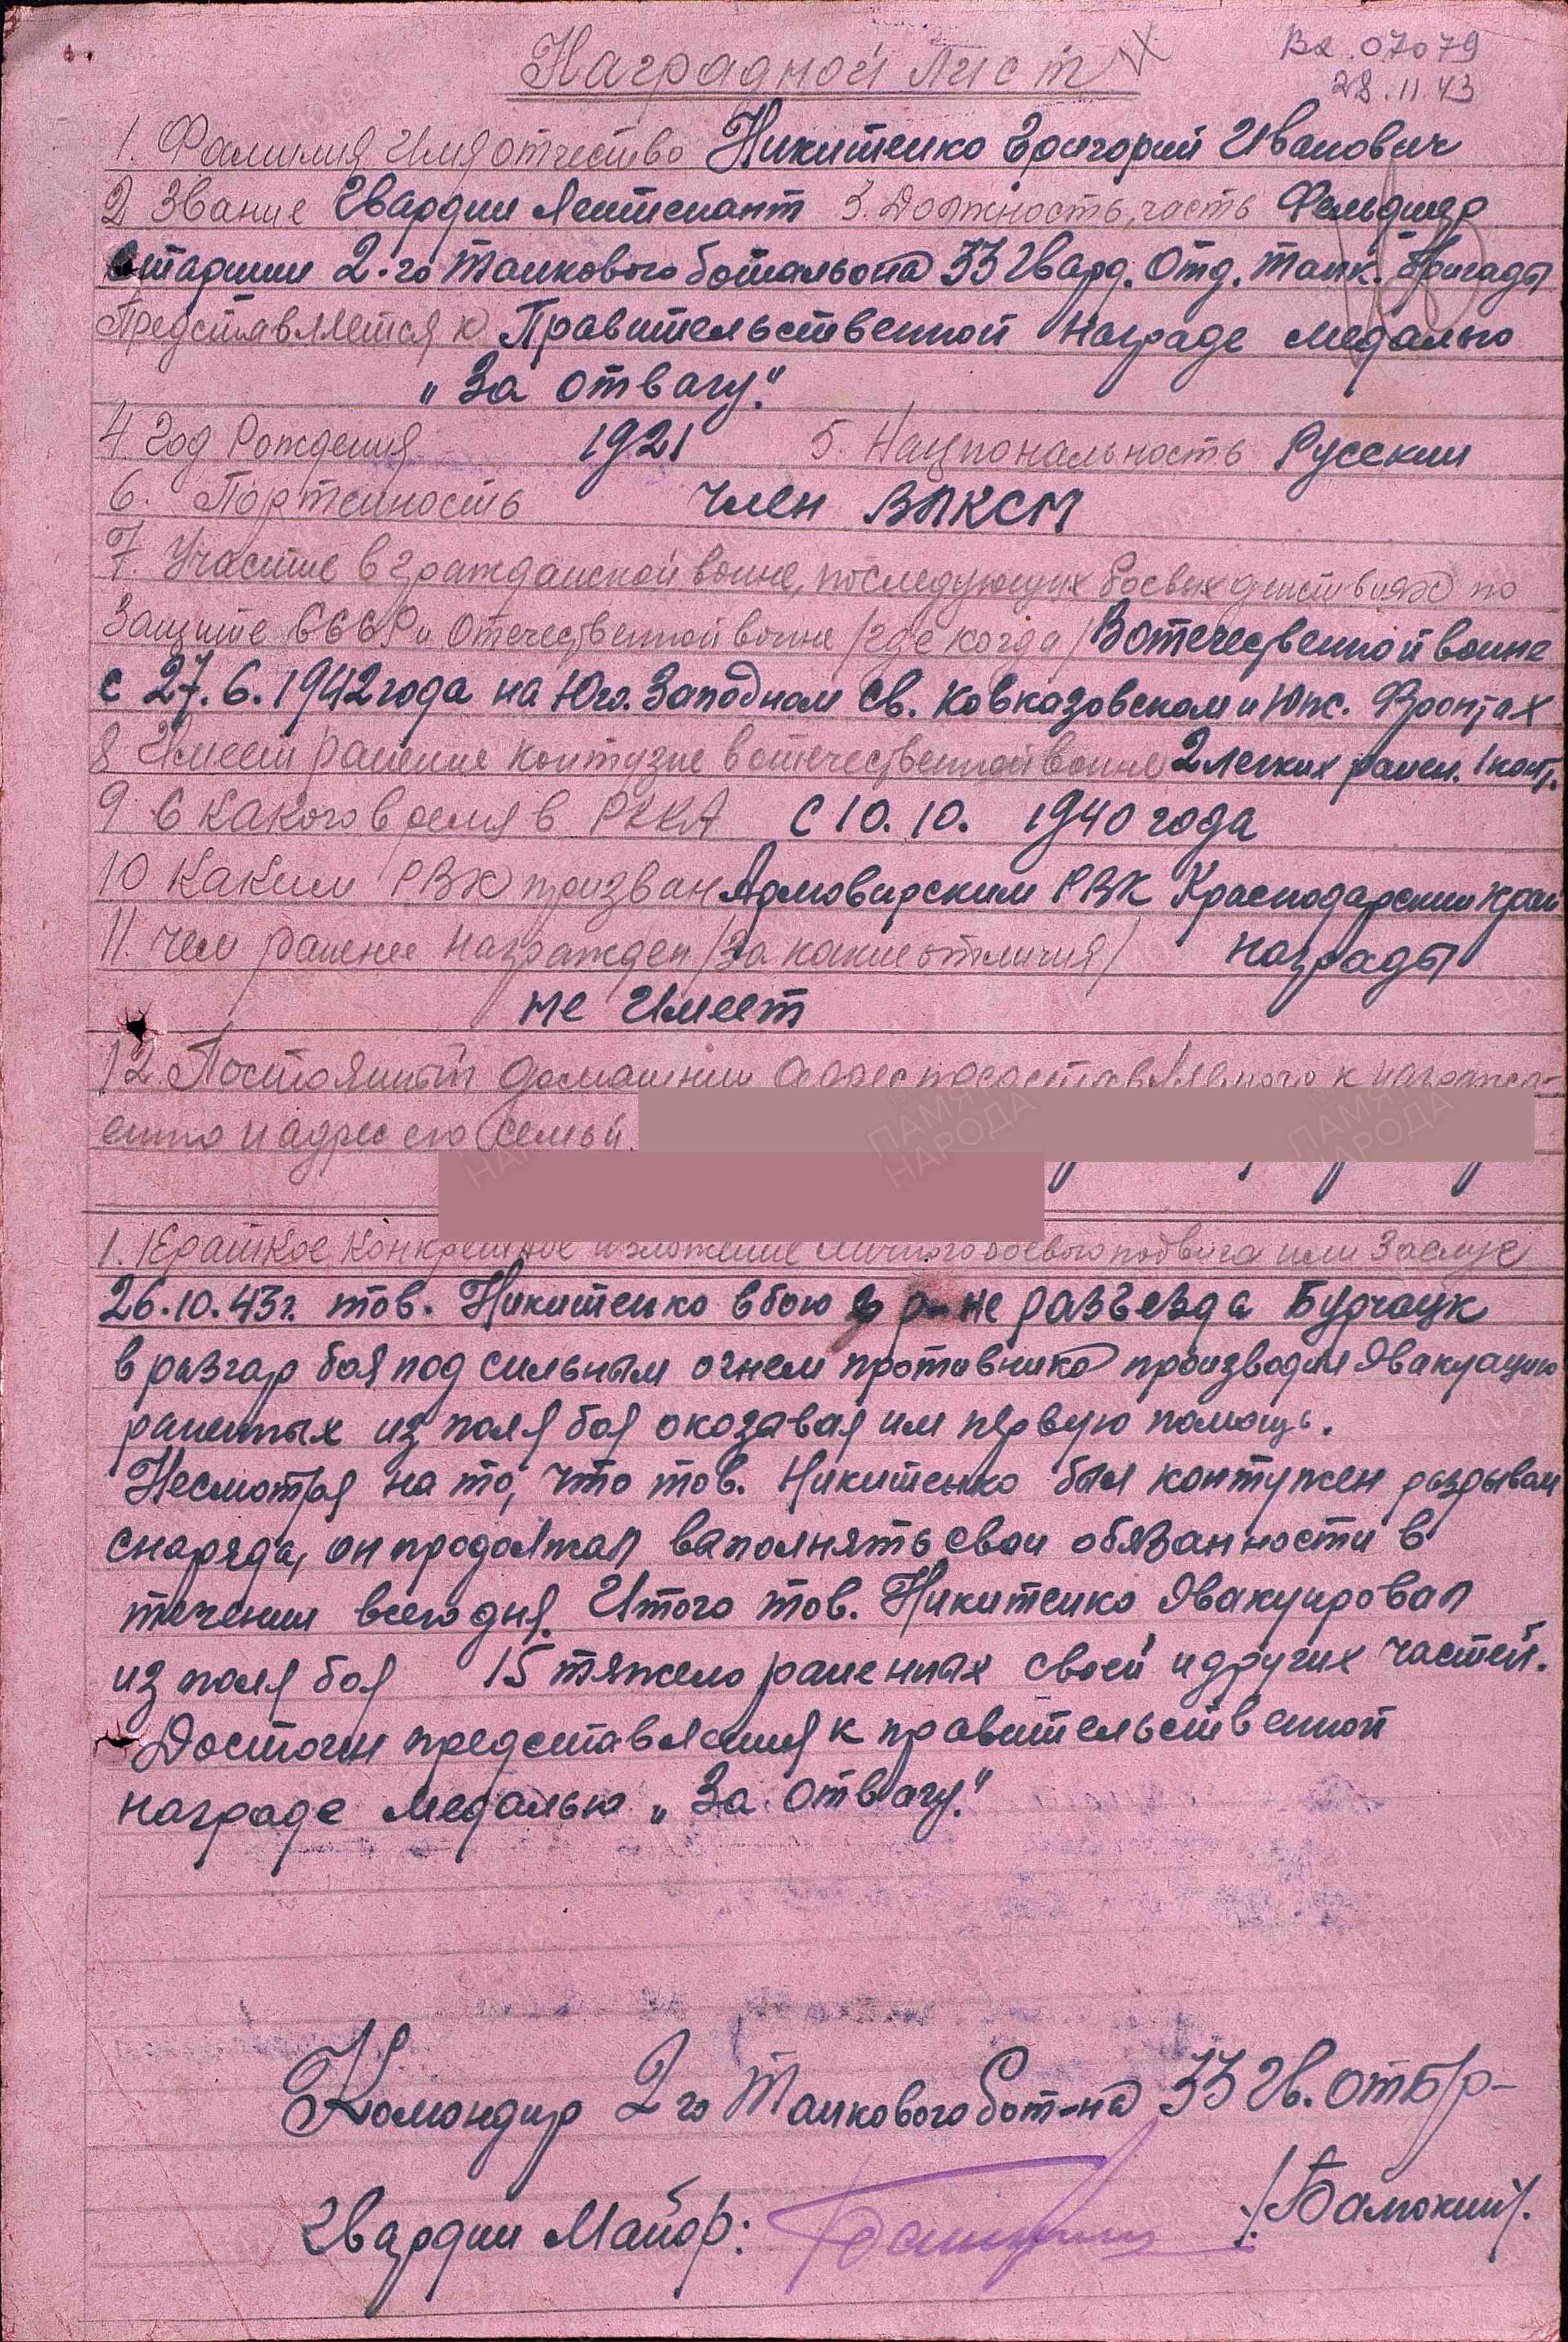 Наградной лист
Вх. 07079
28.11.43
1. Фамилия Имя отчество Никитенко Григорий Иванович
2 Звание Гвардии Лейтенант 3. Должность, часть Фельдшер
старший 2-го танкового батальона 33 Гвард. Отд. Танк. Бригады
Представляется к Правительственной награде медалью
„За отвагу."
4. Год Рождения 1921 5. Национальность Русский
6. Партейность Член ВЛКСМ
7. Участие в гражданской войне, последующих боевых действиях по
Защите СССР и Отечественной войне /где когда/ В отечественной войне
с 27.6.1942 года на Юго. Западном Св. Кавказовском и Юж. Фронтах
8 Имеет ранение контузие в отечественной войне 2 легких ранен. 1 конт.
9 С какого время в РККА с 10.10. 1940 года
10 Каким РВК призван Армовирским РВК Краснодарский край
11. Чем ранее награжден /за какие отличия/ награды
не Имеет
12. Постоянный домашний адрес представляемого к награжд-
ению и адрес его семьи
1. Краткое, конкретное изложение личного боевого подвига или Заслуг
26.10.43г. тов. Никитенко в бою в р-не разъезда Бурчацк
в разгар боя под сильным огнем противника производил Эвакуацию
раненых из поля боя оказавая им первую помощь.
Несмотря на то, что тов. Никитенко был контужен разрывом
снаряда, он продолжал выполнять свои обязанности в
течении всего дня. Итого тов. Никитенко Эвакуировал
из поля боя 15 тяжело раненных своей и других частей.
Достоин представления к правительственной
награде медалью „За отвагу."
Командир 2го Танкового бат-на 33 Гв. отбр-
Гвардии Майор: